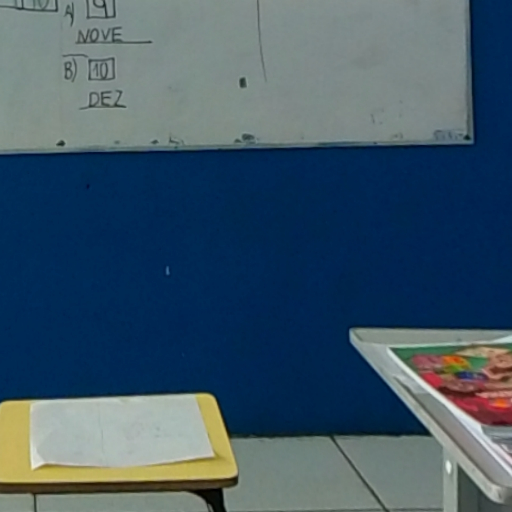 A) 9
NOVE
B) 10
DEZ